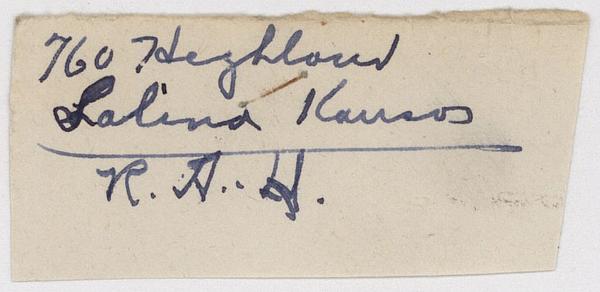 760 Highland
Salina Kansas
R. H. H.